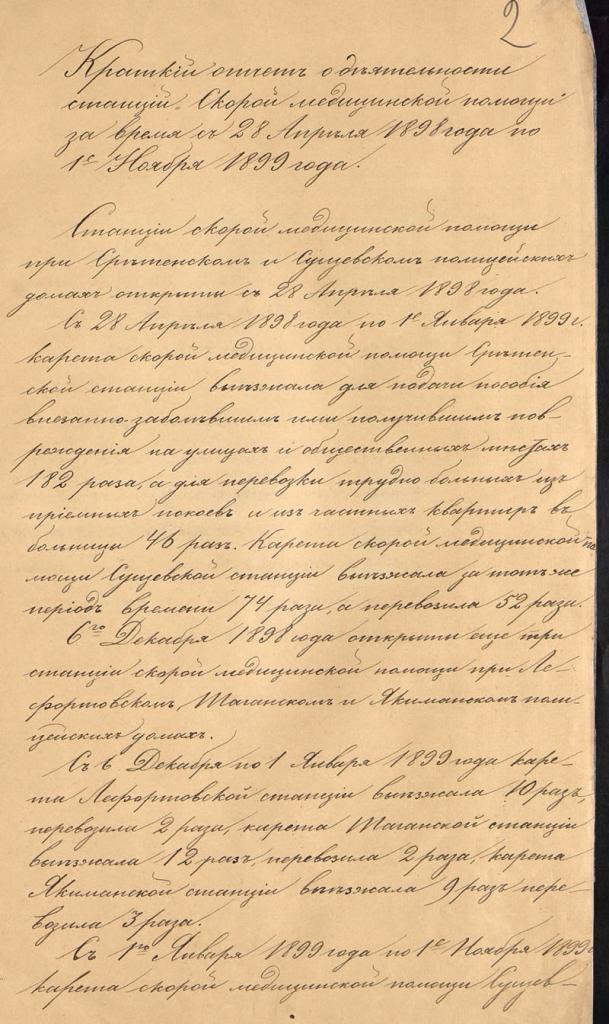 2
Краткій отчетъ о дѣятельности
станцій Скорой медицинской помощи
за время съ 28 Апрѣля 1898 года по
1е Ноября 1899 года.
Станціи скорой медицинской помощи
при Срѣтенскомъ и Сущевскомъ полицейскихъ
домахъ открыты съ 28 Апрѣля 1898 года.
Съ 28 Апрѣля 1898 года по 1е Января 1899 г.
карета скорой медицинской помощи Срѣтен-
ской станціи выѣзжала для подачи пособія
внезапно заболѣвшимъ или получившимъ пов-
режденія на улицахъ и общественныхъ мѣстахъ
182 раза, а для перевозки трудно больныхъ изъ
пріемныхъ покоевъ и изъ частныхъ квартиръ въ
больницы 46 разъ. Карета скорой медицинской по
мощи Сущевской станціи выѣзжала за тотъ же
періодъ времени 74 раза, а перевозила 52 раза.
6го Декабря 1898 года открыты еще три
станціи скорой медицинской помощи при Ле-
фортовскомъ, Таганскомъ и Якиманскомъ поли-
цейскихъ домахъ.
Съ 6 Декабря по 1 Января 1899 года каре-
та Лефортовской станціи выѣзжала 10 разъ,
перевозила 2 раза, карета Таганской станціи
выѣзжала 12 разъ, перевозила 2 раза, карета
Якиманской станціи выѣзжала 9 разъ пере-
возила 3 раза.
Съ 1го Января 1899 года по 1е Ноября 1899 г
карета скорой медицинской помощи Сущев-